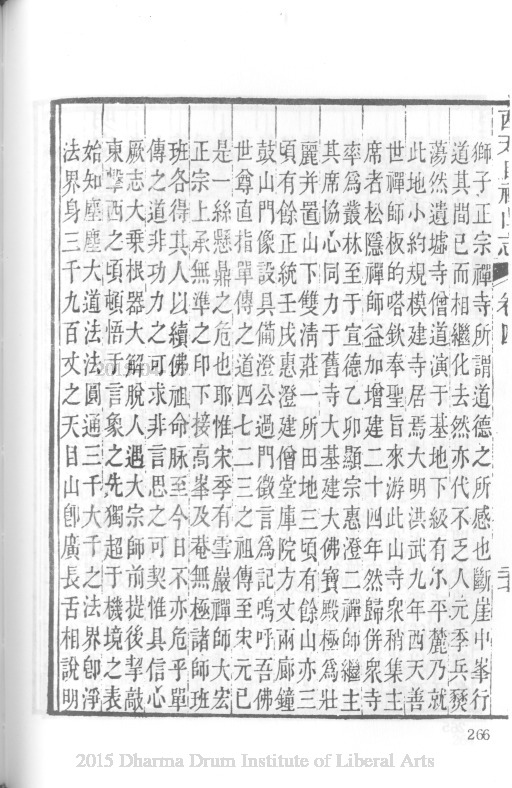 獅子正宗禪寺所謂道德之所感也斷崖中峯行
道其間已而相繼化去然亦代不乏人元季兵燹
蕩然遺墟寺僧道演于基地下級有小平麓乃就
此地小約規模建寺居焉大明洪武九年西天善
世禪師板的嗒欽奉聖旨來游此山寺衆稍集主
席者松隱禪師益加增建二十四年然歸併衆寺
率爲叢林至于宣德乙卯顯宗惠澄二禪師繼主
其席協心同力于舊寺大基建大佛寶殿極爲壯
麗并置山下雙清莊一所田地三頃有餘山亦三
頃有餘正統壬戌惠澄建僧堂庫院方丈兩廊鐘
鼓山門像設具備澄公過門徵言爲記嗚呼吾佛
世尊直指單傳之道四七二三之祖傳至宋元已
是一絲懸鼎之危也耶惟宋季有雪巖禪師大宏
正宗上承無準之印下接高峯及菴無極諸師班
班各得其人以續佛祖命脉至今日不亦危乎單
傳之道非功力之可求非言思之可契惟具信心
厥志大乗根器大解脫人遇大宗師前提後挈敲
東擊西之頃頓悟于言象之先獨超于機境之表
始知塵塵大道法法圓通三千大千之法界卽淨
法界身三千九百丈之天目山卽廣長舌相說明
西天目祖山志 卷四
266
2015 Dharma Drum Institute of Liberal Arts